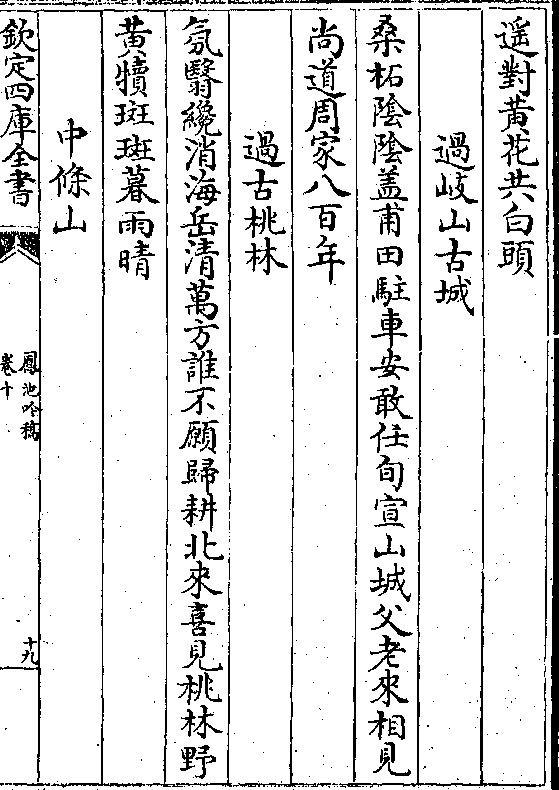 遥對黄花共白頭
過岐山古城
桑柘陰陰盖甫田駐車安敢任旬宣山城父老來相見
尚道周家八百年
過古桃林
氛翳纔消海岳清萬方誰不願歸耕北來喜見桃林野
黄犢斑斑暮雨晴
中條山
欽定四庫全書
鳳池吟稿
卷十
十九